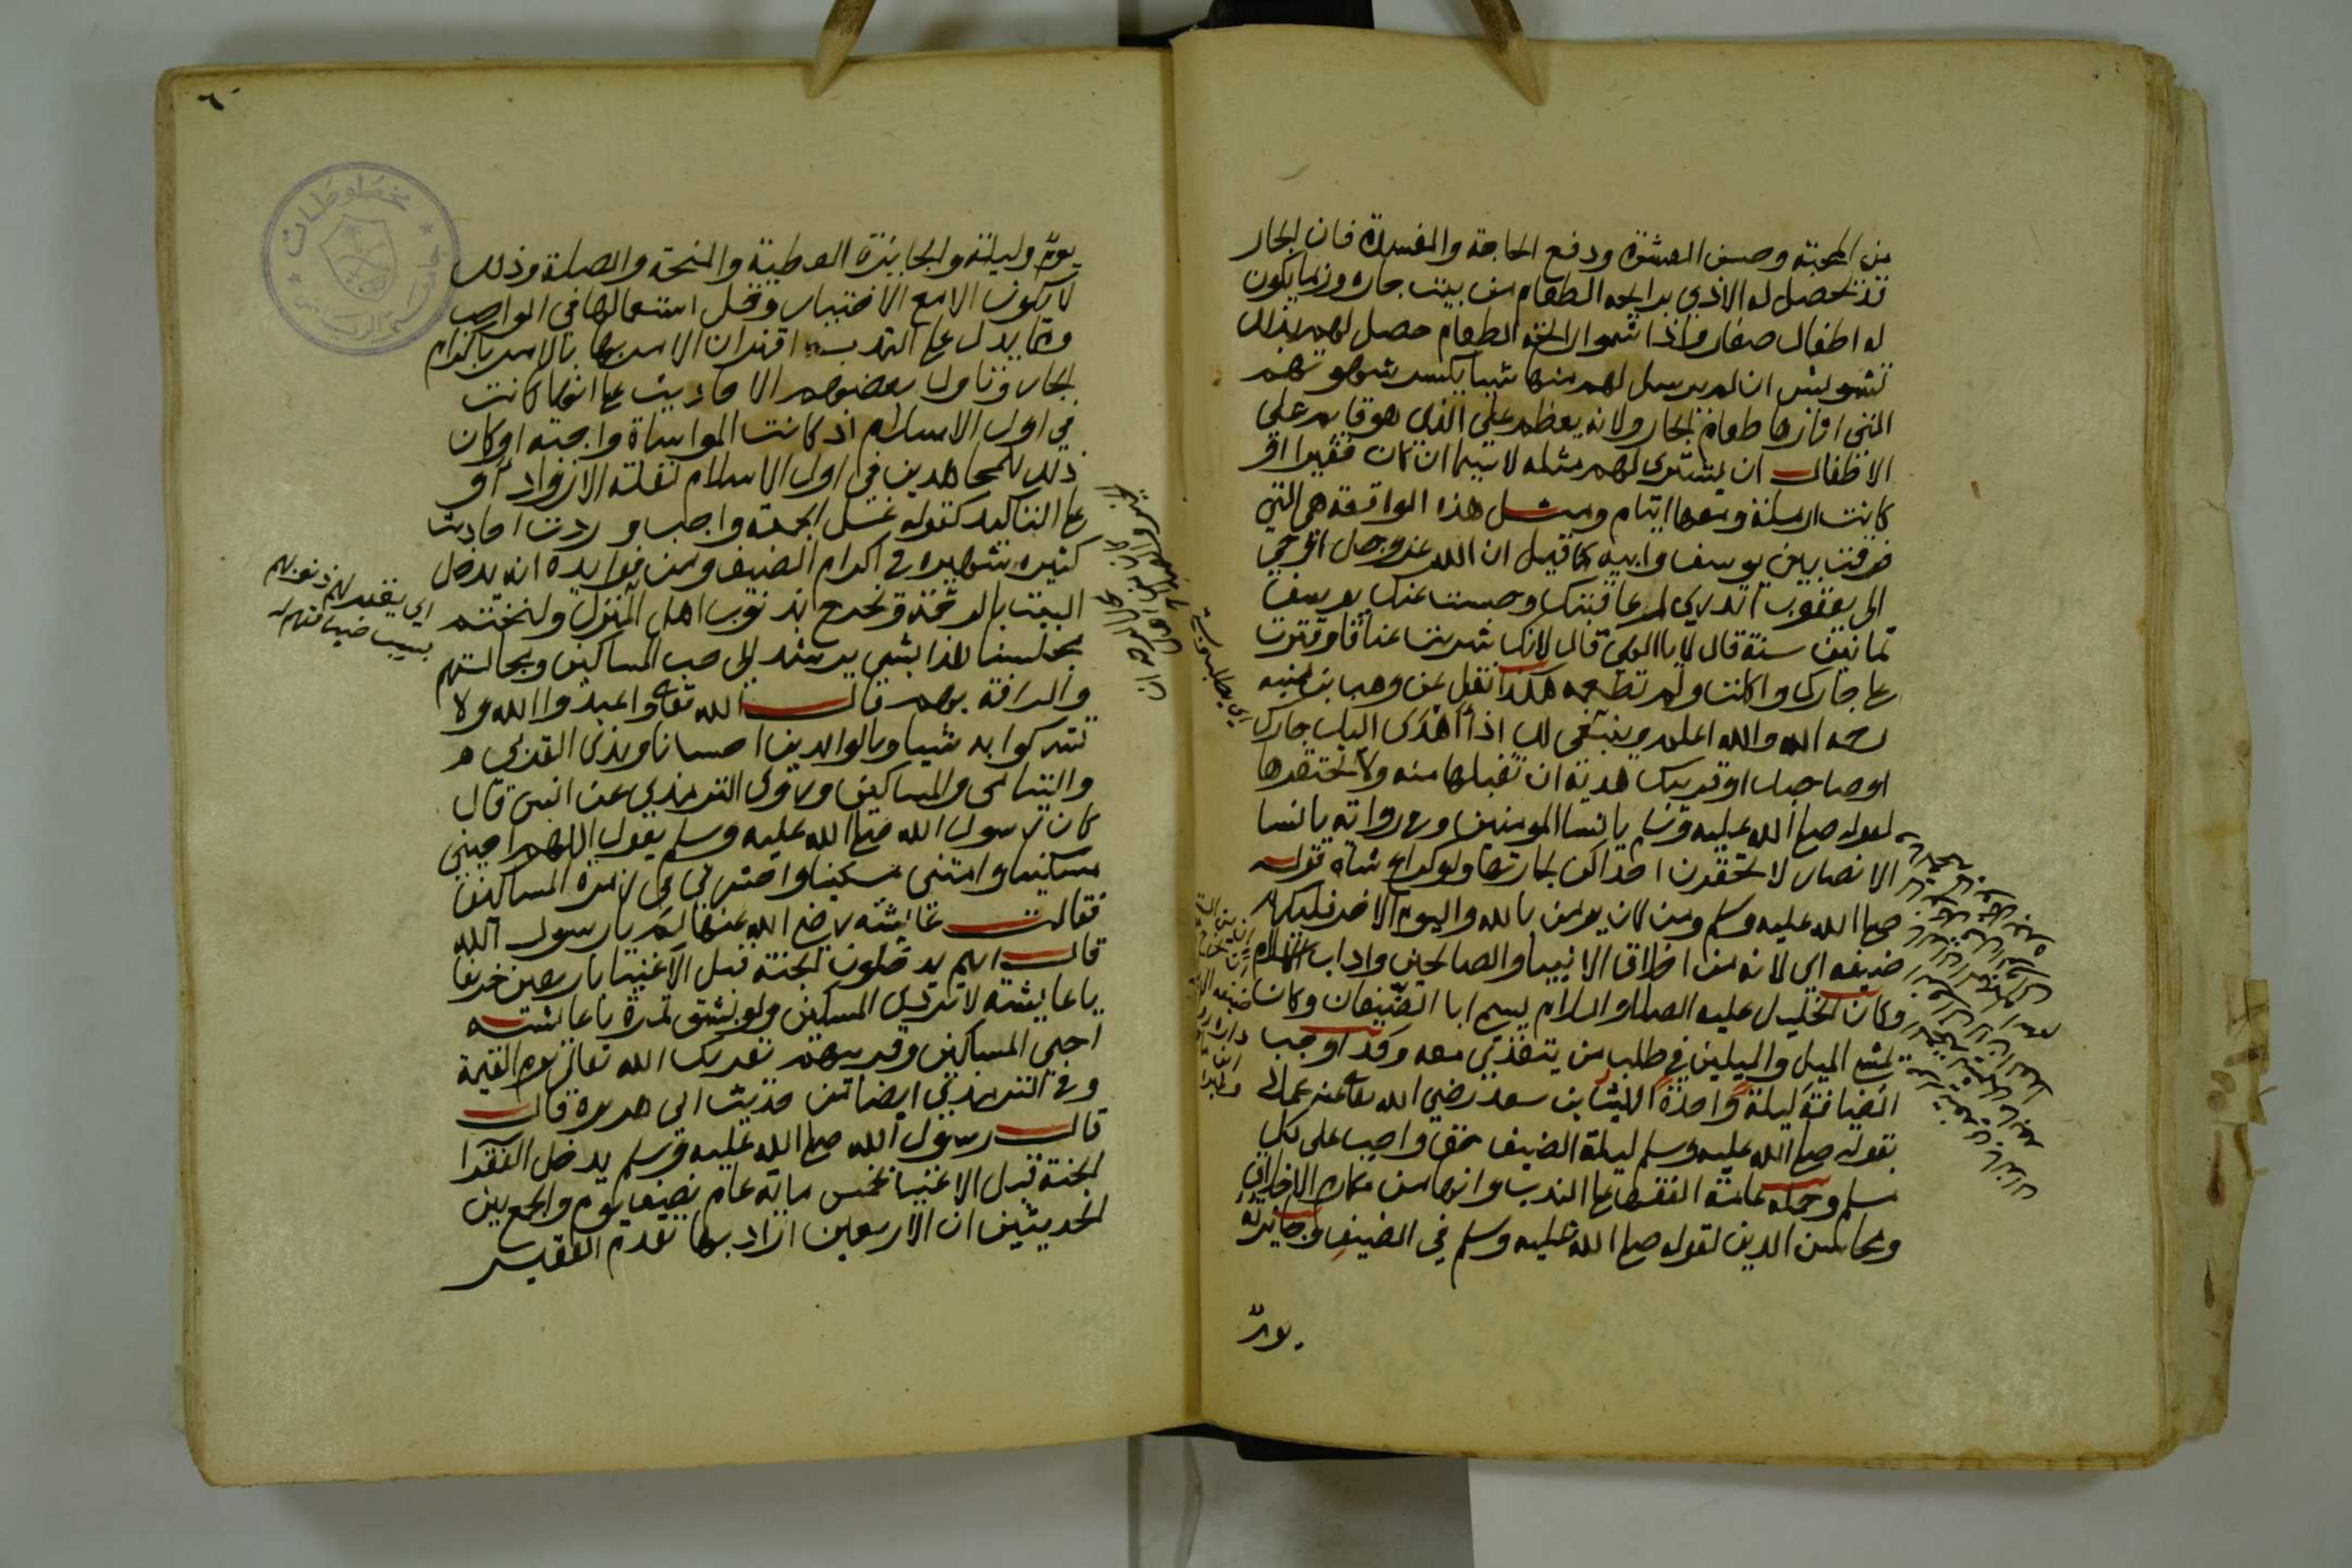 من المحبة وحسن العشرة ودفع الحاجة والمفسدة فان الجار
قد يحصل له الاذي برايحة الطعام من بيت جاره وربما يكون
له اطفال صغار فاذا شموا رايحة الطعام حصل لهم بذلك
تشويش ان لم يرسل لهم منها شيا يكسر شهوتهم
التي اثارها طعام الجار ولانه يعظم علي الذي هو قايم علي
الاطفال ان يشتري لهم مثله لا سيما ان كان فقيرا او
كانت ارملة ومعها ايتام ومثل هذه الواقعة هي التي
فرقت بين يوسف وابيه كما قيل ان الله عز وجل اوحي
الى يعقوب اتدري لم عاقبتك وحبست عنك يوسف
ثمانين سنة قال لا يا الهي قال لانك شويت عناقا وقترت
على جارك واكلت ولم تطعمه هكذا نقل عن وهب بن منبه
رحمه الله والله اعلم وينبغي لك اذا اهدى اليك جارك
او صاحبك او قريبك هدية ان تقبلها منه ولا تحتقرها
لقوله صلى الله عليه وسلم يا نسا المومنين وفي رواية يا نسا
الانصار لا تحقرن احداكن لجارتها ولو كراع شاة قوله
صلى الله عليه وسلم ومن كان يومن بالله واليوم الاخر فليكرم
ضيفه اي لانه من اخلاق الانبيا والصالحين واداب الاسلام
وكان الخليل عليه الصلاة والسلام يسمى ابا الضيفان وكان
يمشي الميل والميلين في طلب من يتغذي معه وقد اوجب
الضيافة ليلة واحدة الليث بن سعد رضي الله تعالى عنه عملا
بقوله صلى الله عليه وسلم ليلة الضيف حق واجب على كل
مسلم وحمله عامة الفقها على الندب وانها من مكارم الاخلاق
ومحاسن الدين لقوله صلى الله عليه وسلم في الضيف وجايزته
يوم
اي يطلب منه
يوم وليلة والجايزة العطية والمنحة والصلة وذلك
لا يكون الا مع الاختيار وقل استعمالها في الواجب
ومما يدل على الندب اقتران الامر بها بالامر باكرام
الجار وتاول بعضهم الاحاديث على انها كانت
في اول الاسلام اذ كانت المواساة واجبة او كان
ذلك للمجاهدين في اول الاسلام لقلة الازواد او
على التاكيد كقوله غسل الجمعة واجب ووردت احاديث
كثيرة شهيرة في اكرام الضيف ومن فوايده انه يدخل
البيت بالرحمة ويخرج بذنوب اهل المنزل ولنختم
مجلسنا هذا بشي يرشد الى حب المساكين ومجالستهم
والرافة بهم قال الله تعالى واعبدوا الله ولا
تشركوا به شيا وبالوالدين احسانا وبذى القربى
واليتامى والمساكين وروى الترمذي عن انس قال
كان رسول الله صلى الله عليه وسلم يقول اللهم احيني
مسكينا وامتني مسكينا واحشرني في زمرة المساكين
فقالت عايشة رضي الله عنها لم يا رسول الله
قال انهم يدخلون الجنة قبل الاغنيا باربعين خريفا
يا عايشة لا تردي المسكين ولو بشق تمرة يا عايشة
احبي المساكين وقربيهم يقربك الله تعالى يوم القيمة
وفي الترمذي ايضا من حديث ابي هريرة قال
قال رسول الله صلى الله عليه وسلم يدخل الفقرا
الجنة قبل الاغنيا بخمس ماية عام نصف يوم والجمع بين
الحديثين ان الاربعين اراد بها تقدم الفقير
اي يغفر لهم ذنوبهم
بسبب ضيافتهم له
مخطوطات